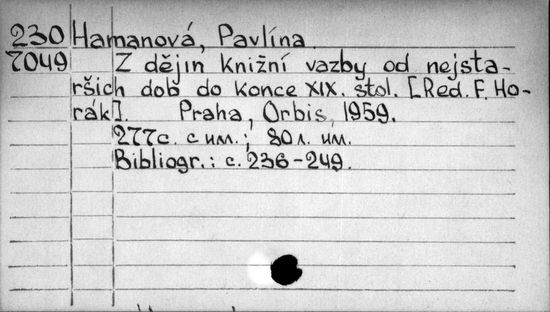 230 Hamanová, Pavlína
7049 Z dějin knižní vazby od nejsta-
rších dob do konce XIX. stol. [Red. F. Ho-
rák]. Praha, Orbis, 1959.
277с. с им.; 80 л. им.
Bibliogr.: с. 236-249.